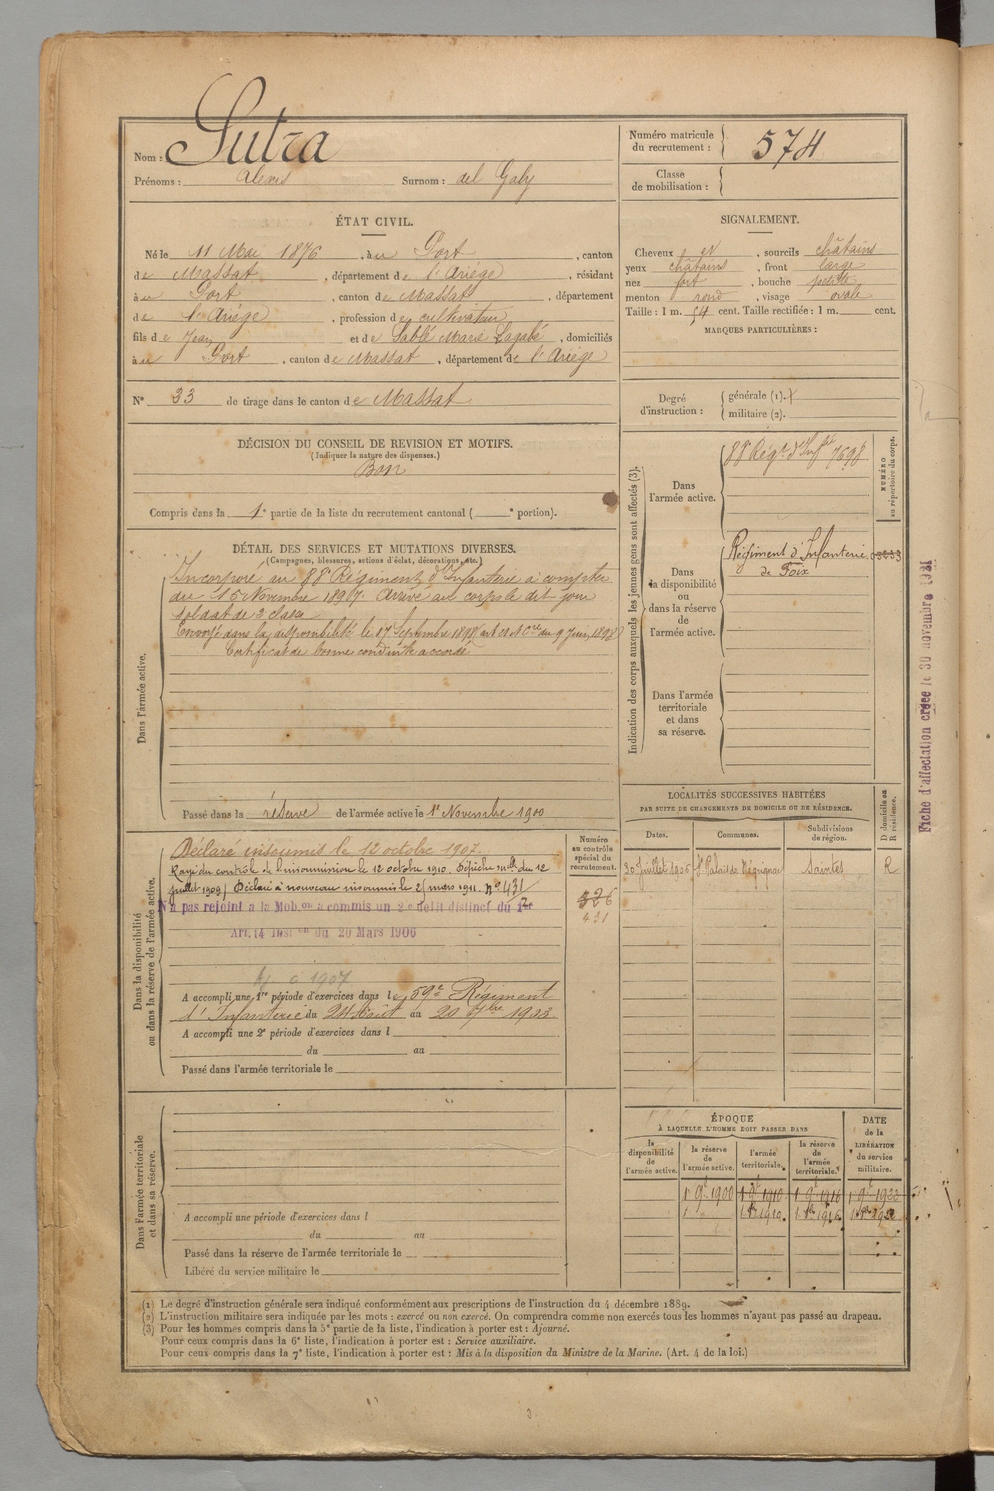 Nom : Sutra
Prénoms : Alexis Surnom : del Gaby
Numéro matricule du recrutement : 574
Classe de mobilisation :
ÉTAT CIVIL.
Né le 11 Mai 1876, à au Port, canton
de Massat, département de l'Ariége, résidant
à au Port, canton de Massat, département
de l'Ariége, profession de cultivateur
fils de Jean et de Sablé Marie Lagabé, domiciliés
à au Port, canton de Massat, département de l'Ariége
N° 33 de tirage dans le canton de Massat
DÉCISION DU CONSEIL DE REVISION ET MOTIFS.
(Indiquer la nature des dispenses.)
Bon
Compris dans la 1e partie de la liste du recrutement cantonal ( e portion).
SIGNALEMENT.
Cheveux et, sourcils châtains
yeux châtains, front large
nez fort, bouche petite
menton rond, visage ovale
Taille : 1 m. 54 cent. Taille rectifiée : 1 m. cent.
MARQUES PARTICULIÈRES :
Degré d'instruction : générale (1).
militaire (2).
DÉTAIL DES SERVICES ET MUTATIONS DIVERSES.
(Campagnes, blessures, actions d'éclat, décorations, etc.)
Dans l'armée active.
Incorporé au 88e Régiment d'Infanterie à compter
du 15 Novembre 1897. Arrivé au corps le dit jour
soldat de 2e classe
Envoyé dans la disponibilité le 17 Septembre 1898 du 9 Juin 1898
Certificat de bonne conduite accordé
Passé dans la réserve de l'armée active le 1er Novembre 1900
Indication des corps auxquels les jeunes gens sont affectés (3).
NUMÉRO au répertoire du corps.
Dans l'armée active.
88e Régt d'Infie 7698
Dans la disponibilité ou dans la réserve de l'armée active.
Régiment d'Infanterie
de Foix
Dans l'armée territoriale et dans sa réserve.
Fiche d'affectation créée le 30 novembre 1921
LOCALITÉS SUCCESSIVES HABITÉES
PAR SUITE DE CHANGEMENTS DE DOMICILE OU DE RÉSIDENCE.
Dates. Communes. Subdivisions de région. D domicile ou R résidence.
30 Juillet 1906 St Palais de Négrignac Saintes R
Dans la disponibilité ou dans la réserve de l'armée active.
Numéro au contrôle spécial du recrutement.
Déclaré insoumis le 12 octobre 1907.
Rayé du contrôle de l'insoumission le 12 octobre 1910. Dépêche mlle du 12
juillet 1909. Déclaré à nouveau insoumis le 25 mars 1911. N° 431
N'a pas rejoint a la Mob.on a commis un 2e délit distinct du 1er
Art. 14 Inst on du 20 Mars 1906
326
431
1907
A accompli une 1re période d'exercices dans le 59e Régiment
d'Infanterie du 24 Août au 20 7bre 1903
A accompli une 2e période d'exercices dans l
du au
Passé dans l'armée territoriale le
Dans l'armée territoriale et dans sa réserve.
A accompli une période d'exercices dans l
du au
Passé dans la réserve de l'armée territoriale le
Libéré du service militaire le
ÉPOQUE
À LAQUELLE L'HOMME DOIT PASSER DANS
DATE de la LIBÉRATION du service militaire.
la disponibilité de l'armée active. la réserve de l'armée active. l'armée territoriale. la réserve de l'armée territoriale.
1 9e 1900 1 9e 1910 1 9e 1916
(1) Le degré d'instruction générale sera indiqué conformément aux prescriptions de l'instruction du 4 décembre 1889.
(2) L'instruction militaire sera indiquée par les mots : exercé ou non exercé. On comprendra comme non exercés tous les hommes n'ayant pas passé au drapeau.
(3) Pour les hommes compris dans la 5e partie de la liste, l'indication à porter est : Ajourné.
Pour ceux compris dans la 6e liste, l'indication à porter est : Service auxiliaire.
Pour ceux compris dans la 7e liste, l'indication à porter est : Mis à la disposition du Ministre de la Marine. (Art. 4 de la loi.)